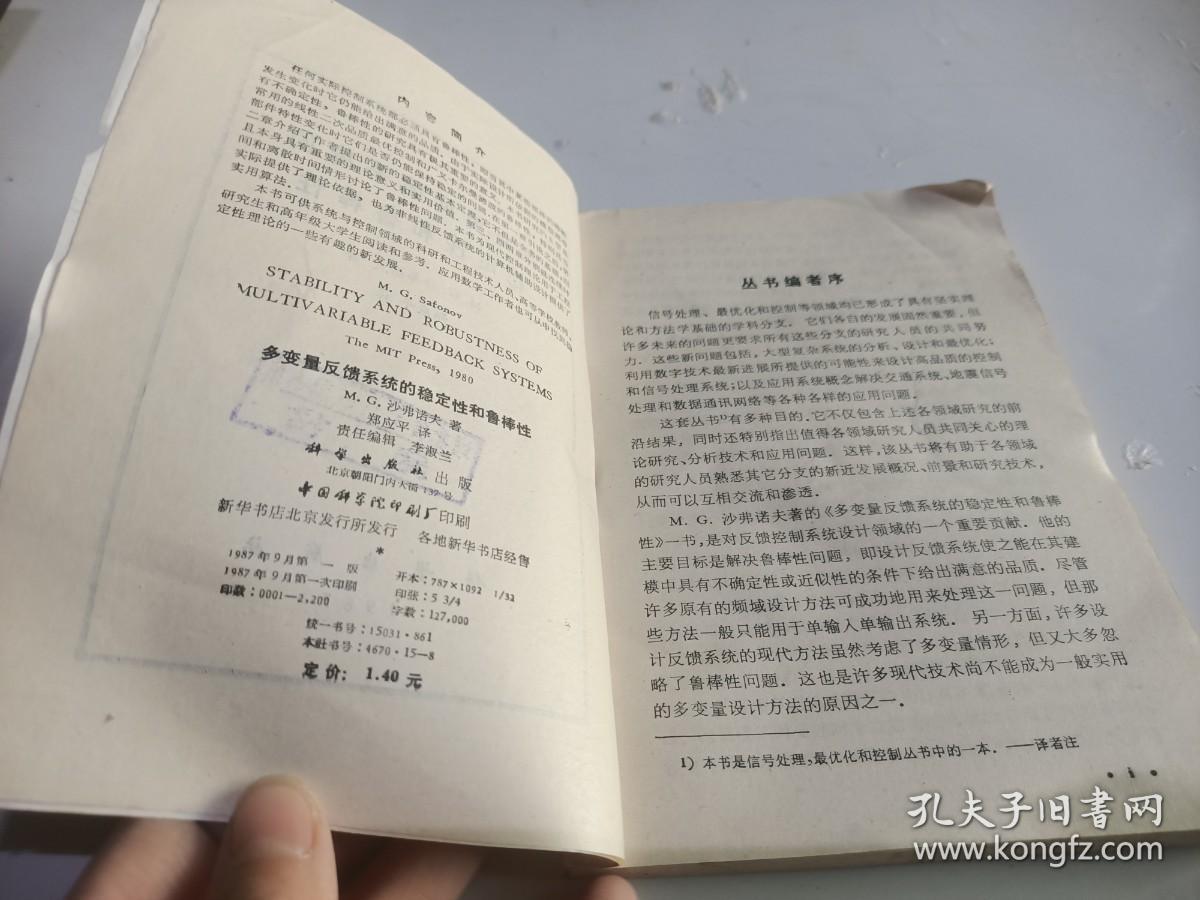 内容简介
任何实际控制系统都必须具有鲁棒性，
发生变化时它仍能给出满意的品质．由于实际
有不确定性，鲁棒性的研究具有极其重要的意义．
常用的线性二次品质最优控制和广义卡尔曼滤波
部件特性变化时它们是否仍能保持稳定的问题．
二章介绍了作者提出的新的稳定性基本定理，它不但
且本身具有重要的理论意义和实用价值．第三、四
间和离散时间情形讨论了鲁棒性问题．本书为现代控制理论用于
实际提供了理论依据，也为非线性反馈系统的计算机辅助设计提供了
实用算法．
本书可供系统与控制领域的科研和工程技术人员、高等学校教师、
研究生和高年级大学生阅读和参考．应用数学工作者也可从中找到稳
定性理论的一些有趣的新发展．
M. G. Safonov
STABILITY AND ROBUSTNESS OF
MULTIVARIABLE FEEDBACK SYSTEMS
The MIT Press, 1980
多变量反馈系统的稳定性和鲁棒性
M. G. 沙弗诺夫 著
郑应平 译
责任编辑 李淑兰
科学出版社 出版
北京朝阳门内大街 137 号
中国科学院印刷厂印刷
新华书店北京发行所发行 各地新华书店经售
*
1987 年 9 月第 一 版 开本：787×1092 1/32
1987 年 9 月第一次印刷 印张：5 3/4
印数：0001—2,200 字数：127,000
统一书号：15031·861
本社书号：4670·15—8
定价： 1.40 元
丛书编者序
信号处理、最优化和控制等领域均已形成了具有坚实理
论和方法学基础的学科分支．它们各自的发展固然重要，但
许多未来的问题更要求所有这些分支的研究人员的共同努
力．这些新问题包括，大型复杂系统的分析、设计和最优化；
利用数字技术最新进展所提供的可能性来设计高品质的控制
和信号处理系统；以及应用系统概念解决交通系统、地震信号
处理和数据通讯网络等各种各样的应用问题．
这套丛书¹⁾有多种目的．它不仅包含上述各领域研究的前
沿结果，同时还特别指出值得各领域研究人员共同关心的理
论研究、分析技术和应用问题．这样，该丛书将有助于各领域
的研究人员熟悉其它分支的新近发展概况、前景和研究技术，
从而可以互相交流和渗透．
M. G. 沙弗诺夫著的《多变量反馈系统的稳定性和鲁棒
性》一书，是对反馈控制系统设计领域的一个重要贡献．他的
主要目标是解决鲁棒性问题，即设计反馈系统使之能在其建
模中具有不确定性或近似性的条件下给出满意的品质．尽管
许多原有的频域设计方法可成功地用来处理这一问题，但那
些方法一般只能用于单输入单输出系统．另一方面，许多设
计反馈系统的现代方法虽然考虑了多变量情形，但又大多忽
略了鲁棒性问题．这也是许多现代技术尚不能成为一般实用
的多变量设计方法的原因之一．
1) 本书是信号处理，最优化和控制丛书中的一本．——译者注
• i •
孔夫子旧书网
www.kongfz.com